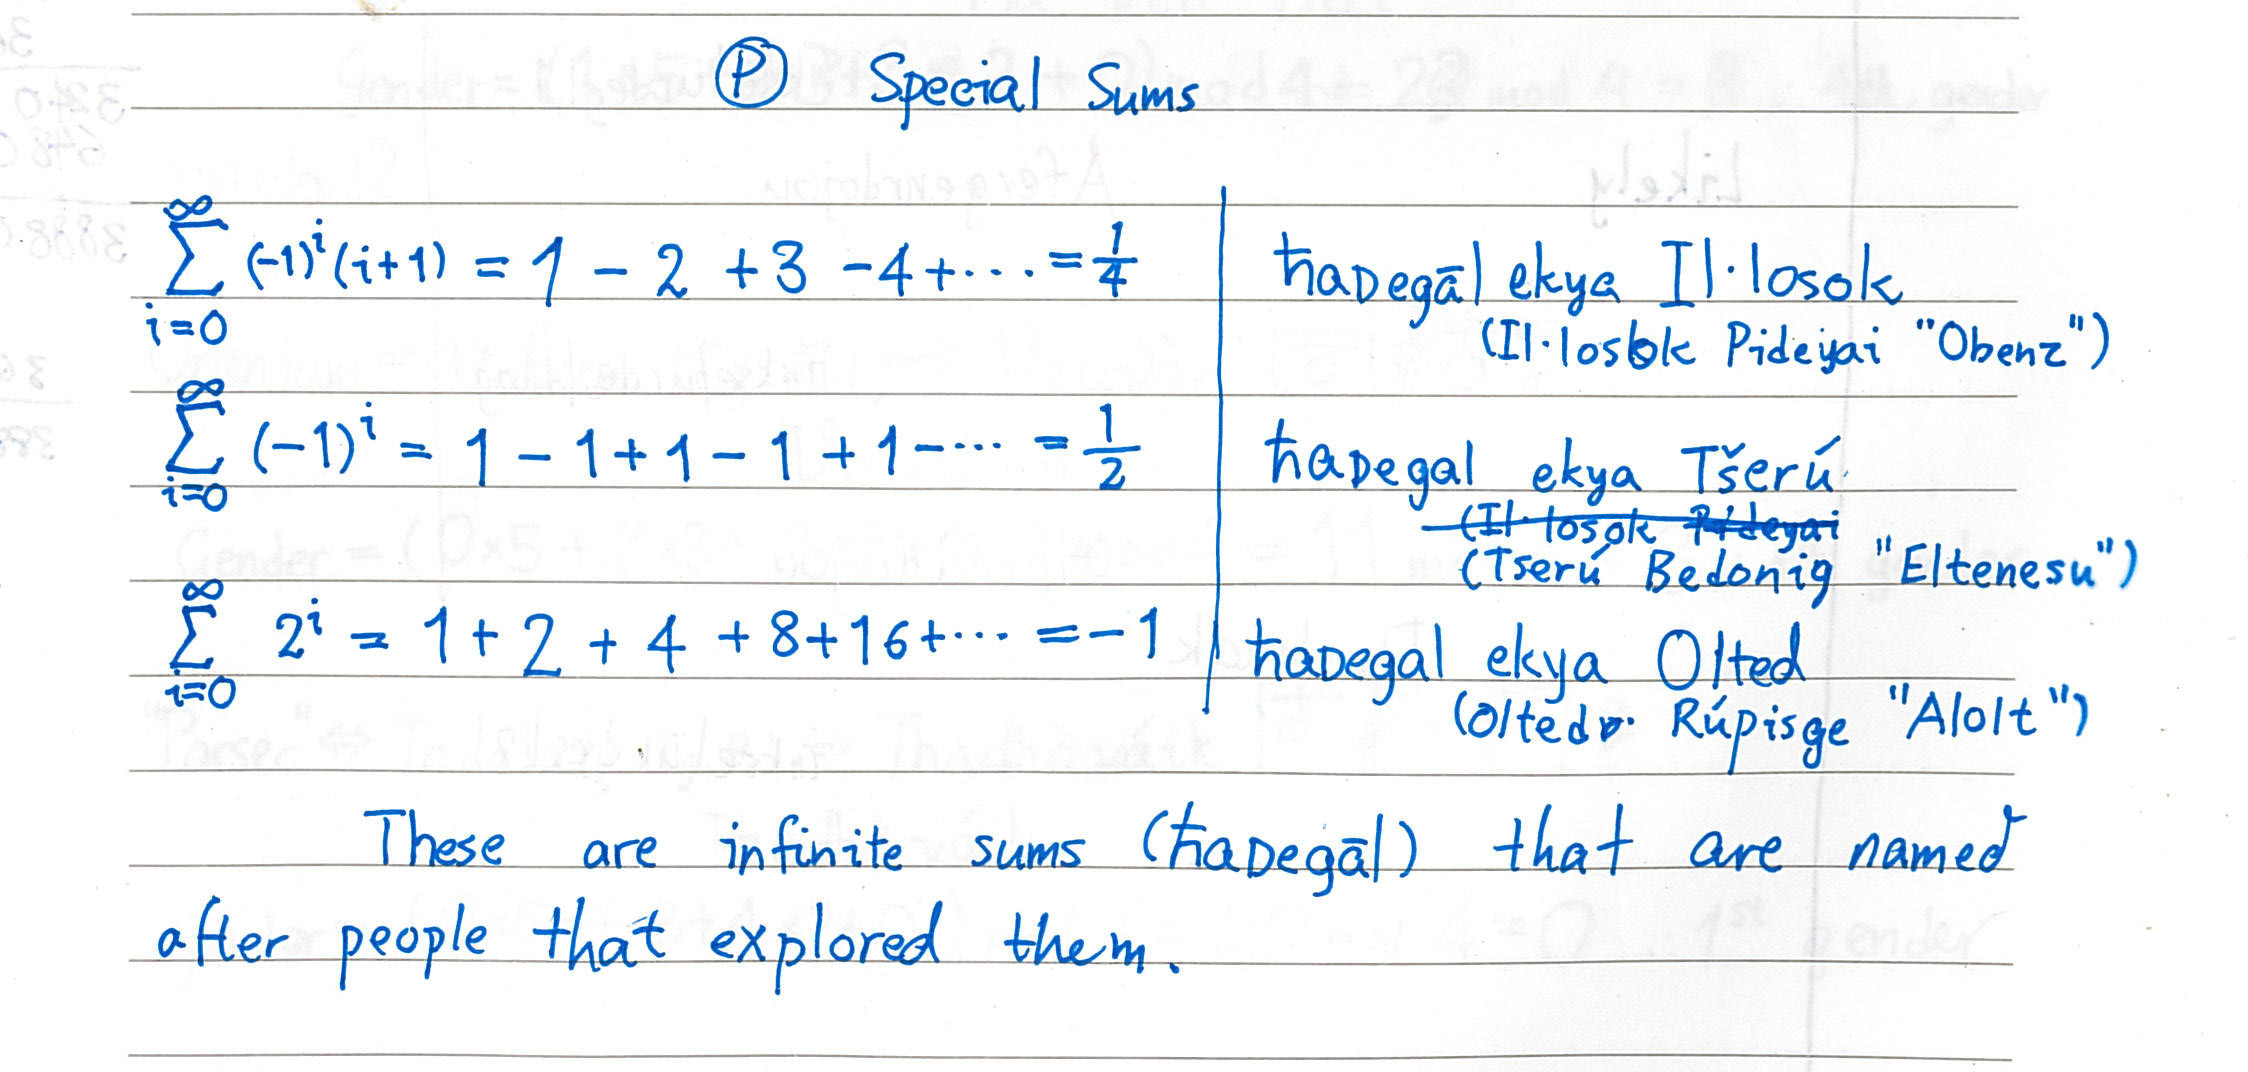 Ⓟ Special Sums
∞
∑ (-1)^i (i+1) = 1 - 2 + 3 - 4 + ··· = 1/4 | ħaᴅegāl ekya Il·losok
i=0
(Il·losok Pideyai "Obenz")
∞
∑ (-1)^i = 1 - 1 + 1 - 1 + 1 - ··· = 1/2 | ħaᴅegal ekya Tšerú
i=0
(Il·losok Pideyai
(Tserú Bedonig "Eltenesu")
∞
∑ 2^i = 1 + 2 + 4 + 8 + 16 + ··· = -1 | ħaᴅegal ekya Olted
i=0
(Olted Rúpisge "Alolt")
These are infinite sums (ħaᴅegāl) that are named
after people that explored them.